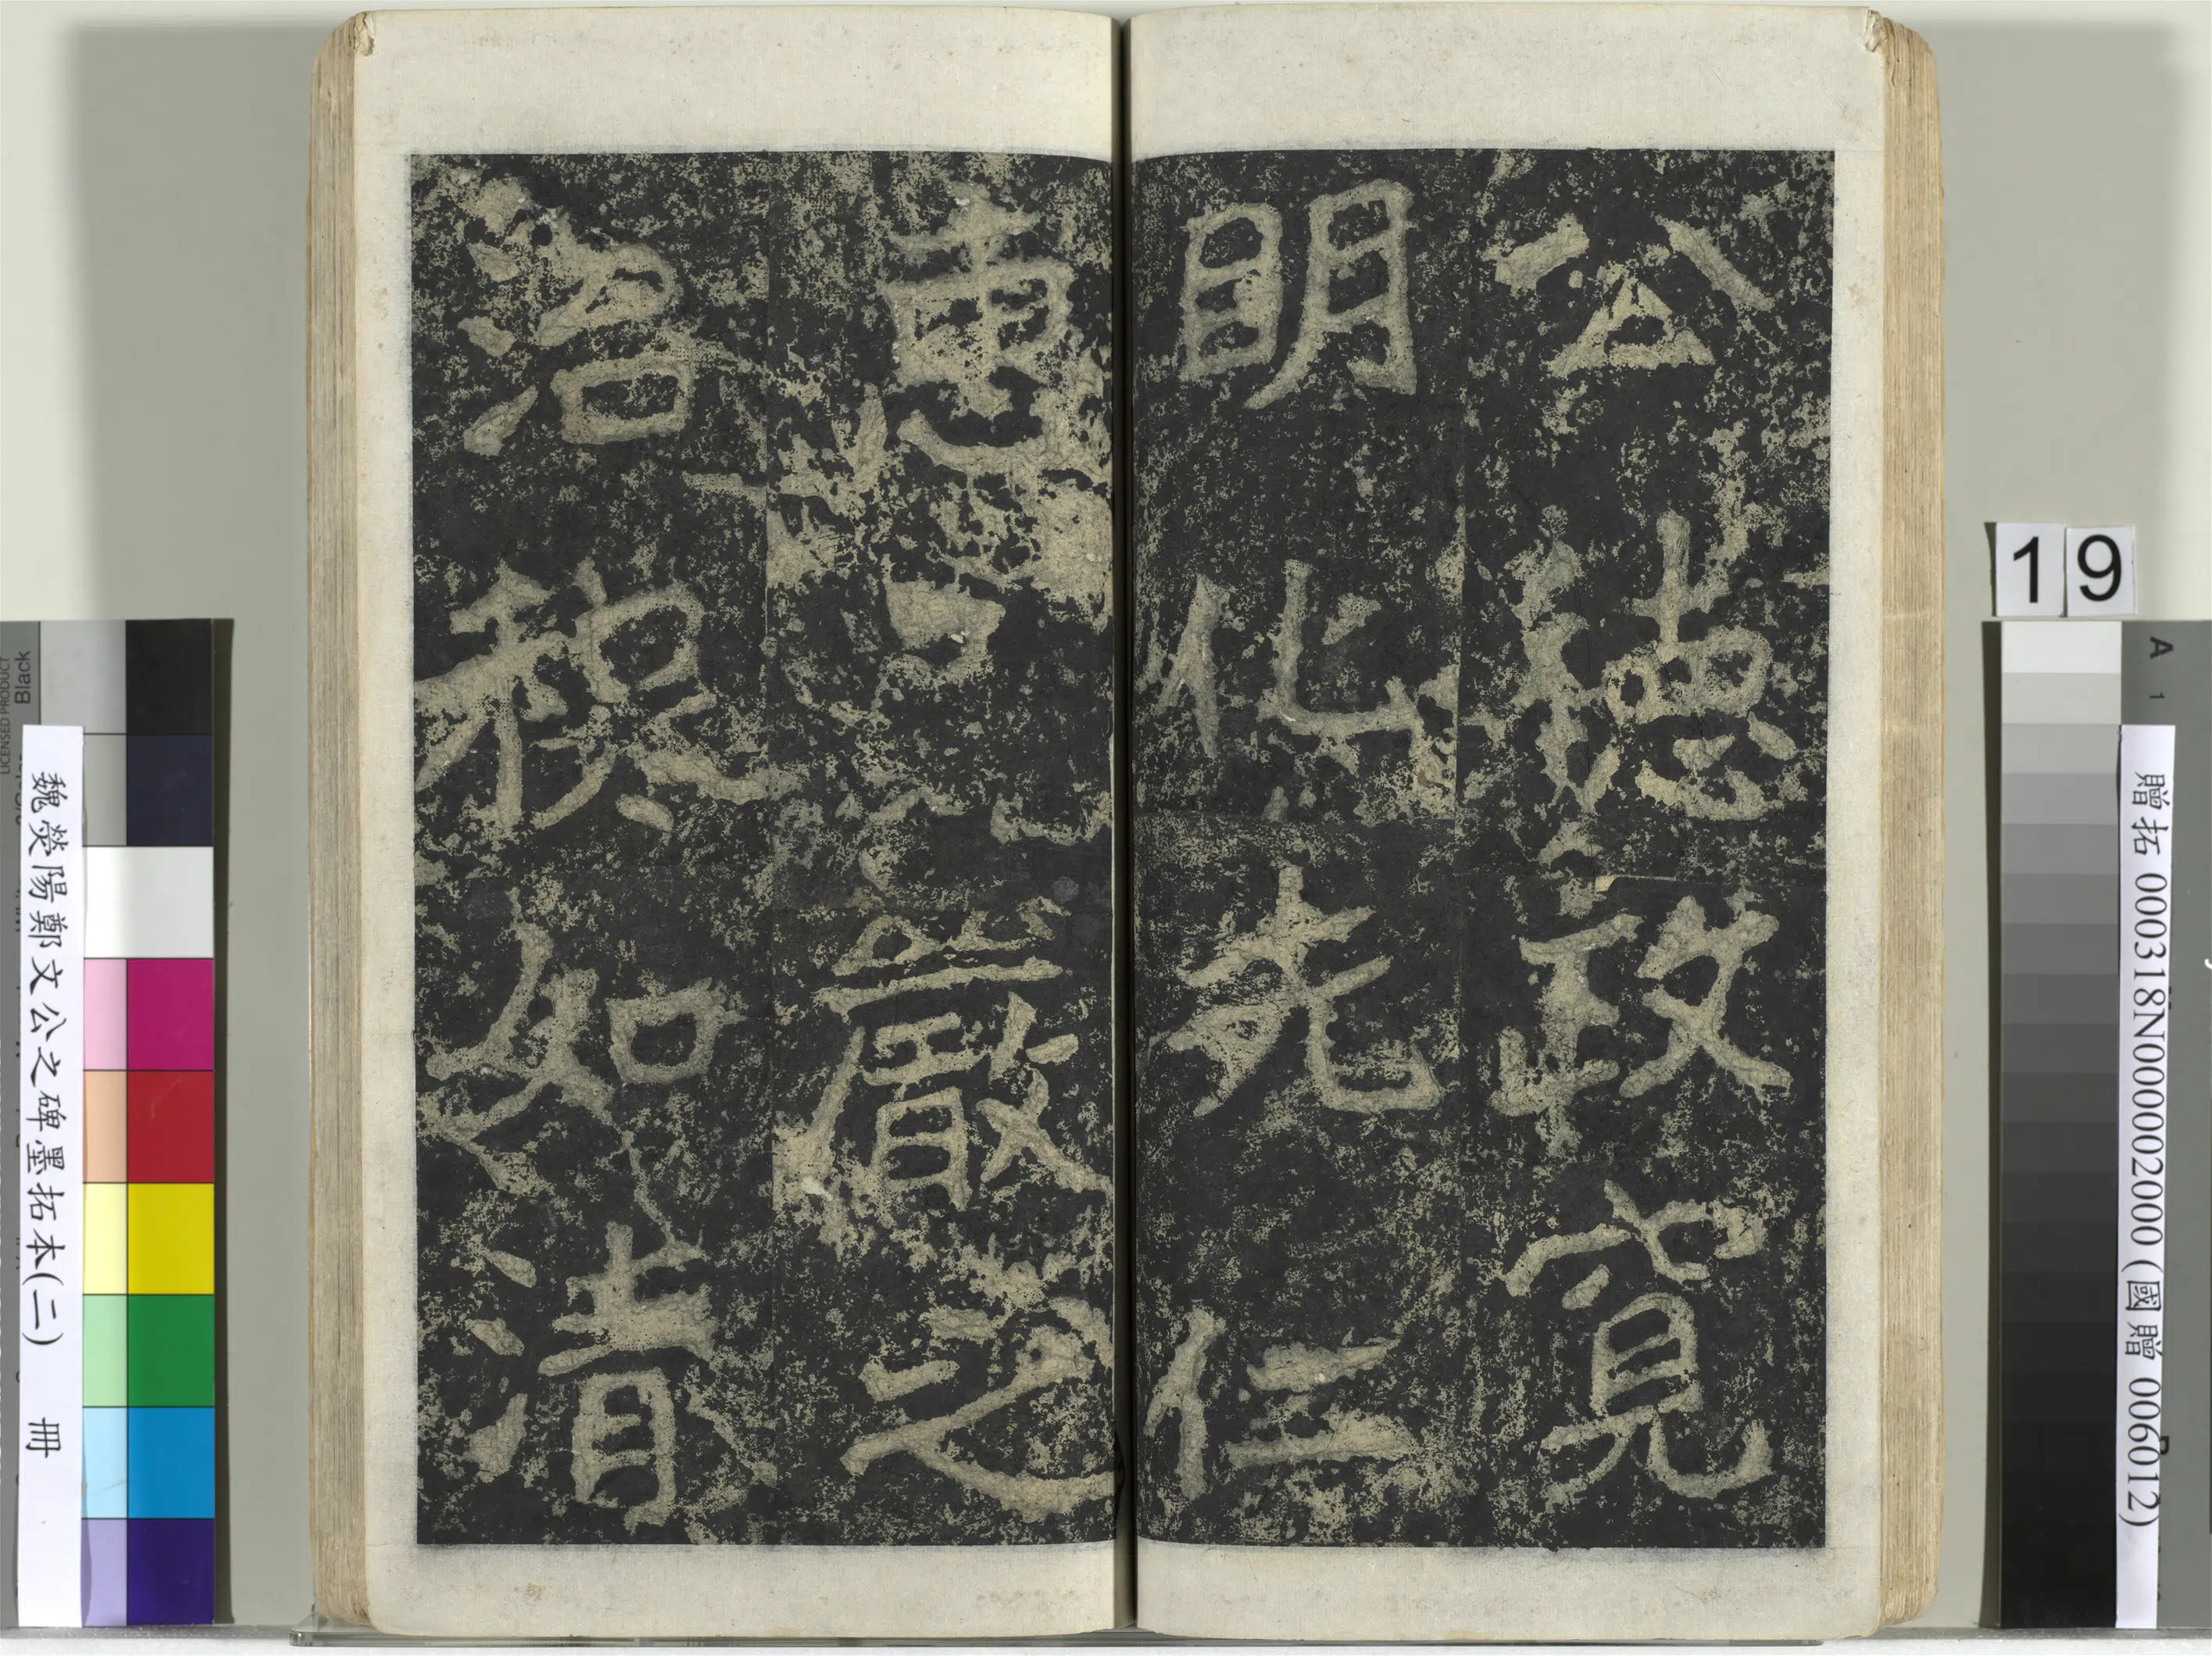 公德政寬
明化先仁
惠嚴之
治穆如清
19
贈拓 000318N000002000 (國贈 006012)
魏滎陽鄭文公之碑墨拓本(二) 冊
LICENSED PRODUCT
Black
A 1